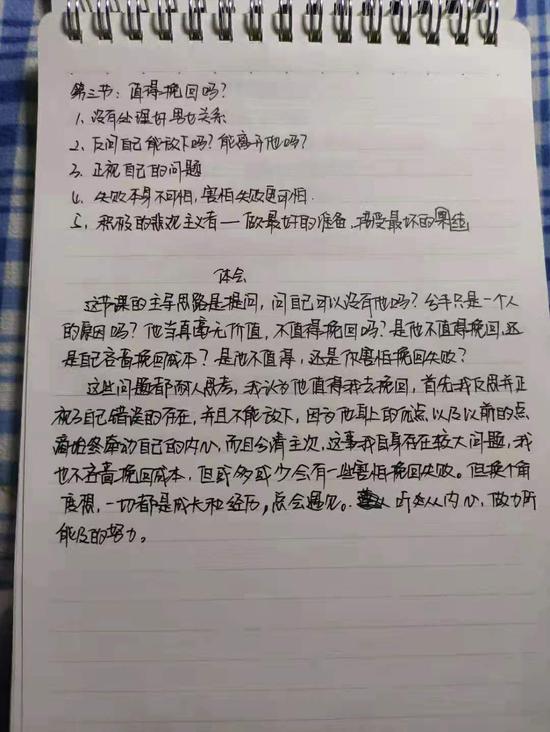 第三节：值得挽回吗？
1、没有处理好男女关系
2、反问自己能放下吗？能离开他吗？
3、正视自己的问题
4、失败本身不可怕，害怕失败更可怕．
5、积极的悲观主义者——做最好的准备，接受最坏的果结
体会
这节课的主导思路是提问，问自己可以没有他吗？分手只是一个人
的原因吗？他当真毫无价值，不值得挽回吗？是他不值得挽回，还
是自己吝啬挽回成本？是他不值得，还是你害怕挽回失败？
这些问题都耐人思考，我认为他值得我去挽回，首先我反思并正
视了自己错误的存在，并且不能放下，因为他身上的优点以及以前的点
滴始终牵动自己的内心，而且分清主次，这事我自身存在较大问题，我
也不吝啬挽回成本，但或多或少会有一些害怕挽回失败。但换个角
度想，一切都是成长和经历，总会遇见。听从从内心，做力所
能及的努力。